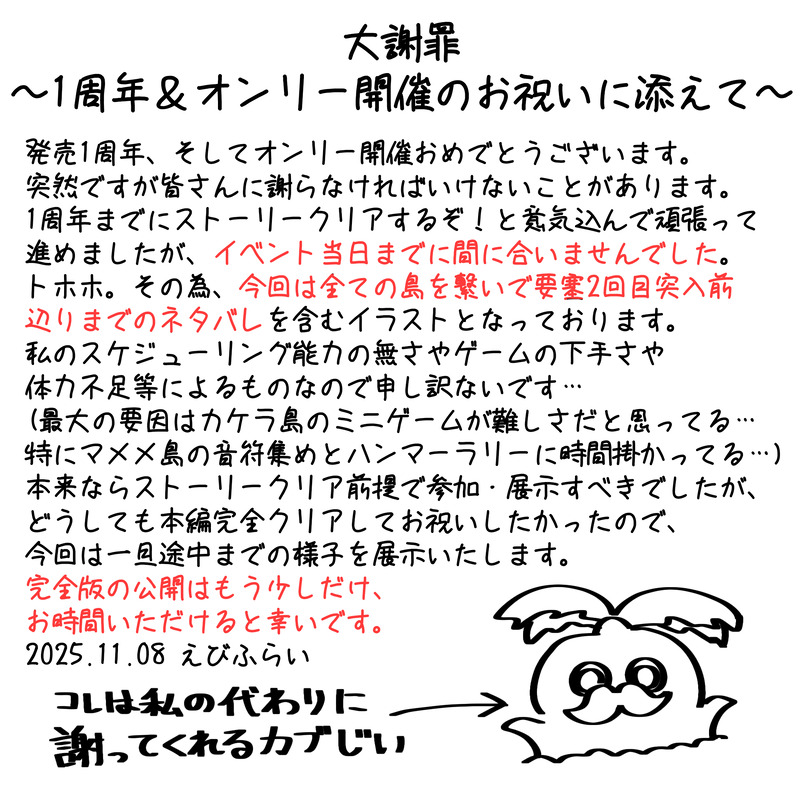 大謝罪
～1周年＆オンリー開催のお祝いに添えて～
発売1周年、そしてオンリー開催おめでとうございます。
突然ですが皆さんに謝らなければいけないことがあります。
1周年までにストーリークリアするぞ！と意気込んで頑張って
進めましたが、イベント当日までに間に合いませんでした。
トホホ。その為、今回は全ての島を繋いで要塞2回目突入前
辺りまでのネタバレを含むイラストとなっております。
私のスケジューリング能力の無さやゲームの下手さや
体力不足等によるものなので申し訳ないです…
(最大の要因はカケラ島のミニゲームが難しさだと思ってる…
特にマメメ島の音符集めとハンマーラリーに時間掛かってる…)
本来ならストーリークリア前提で参加・展示すべきでしたが、
どうしても本編完全クリアしてお祝いしたかったので、
今回は一旦途中までの様子を展示いたします。
完全版の公開はもう少しだけ、
お時間いただけると幸いです。
2025.11.08 えびふらい
コレは私の代わりに
謝ってくれるカブじい